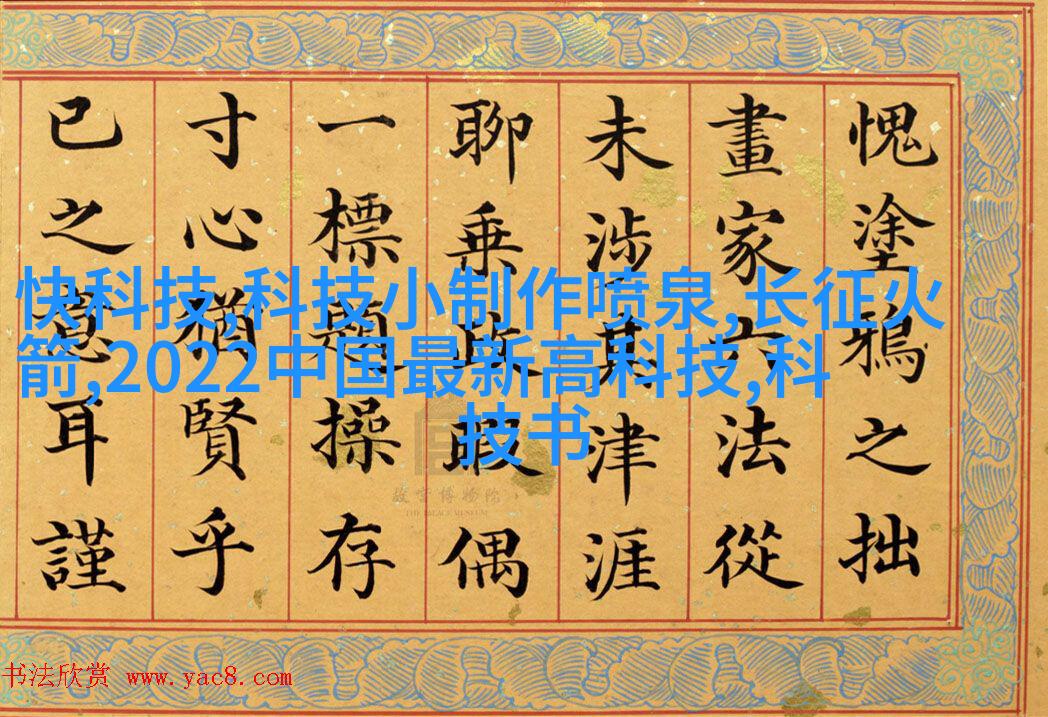 愧塗鴉之拙
畫家六法從
未涉其津涯
聊乘政暇偶
一標題操存
寸心猶賢乎
已之意耳謹
快科技,科技小制作喷泉,长征火
箭,2022中国最新高科技,科
技书
故宫博物院
THE PALACE MUSEUM
书法欣赏 www.yac8.com